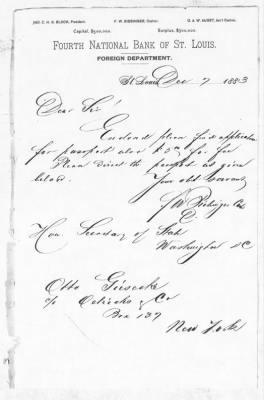 JNO. C. H. D. BLOCK, President. F. W. BIEBINGER, Cashier. G. A. W. AUGST, Ass't Cashier.
Capital, Surplus,
FOURTH NATIONAL BANK OF ST. LOUIS.
FOREIGN DEPARTMENT.
St Louis, Dec 7 1883
Dear Sir!
Enclosed please find application
for passport also $ for fee
Please direct the passport as given
below.
Your obdt Servant
F W Biebinger
Hon. Secretary of State
Washington DC
Otto Giesecke
c/o Oelrichs & Co
Box 137
New York